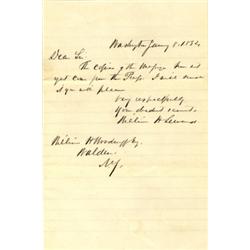 Washington
Dear Sir:
The copies of the Message have not
yet come from the Press. I will send
if you will please
Very respectfully
Your obedient servant
William H Seward
William H Woodruff Esq
Walden
N.Y.